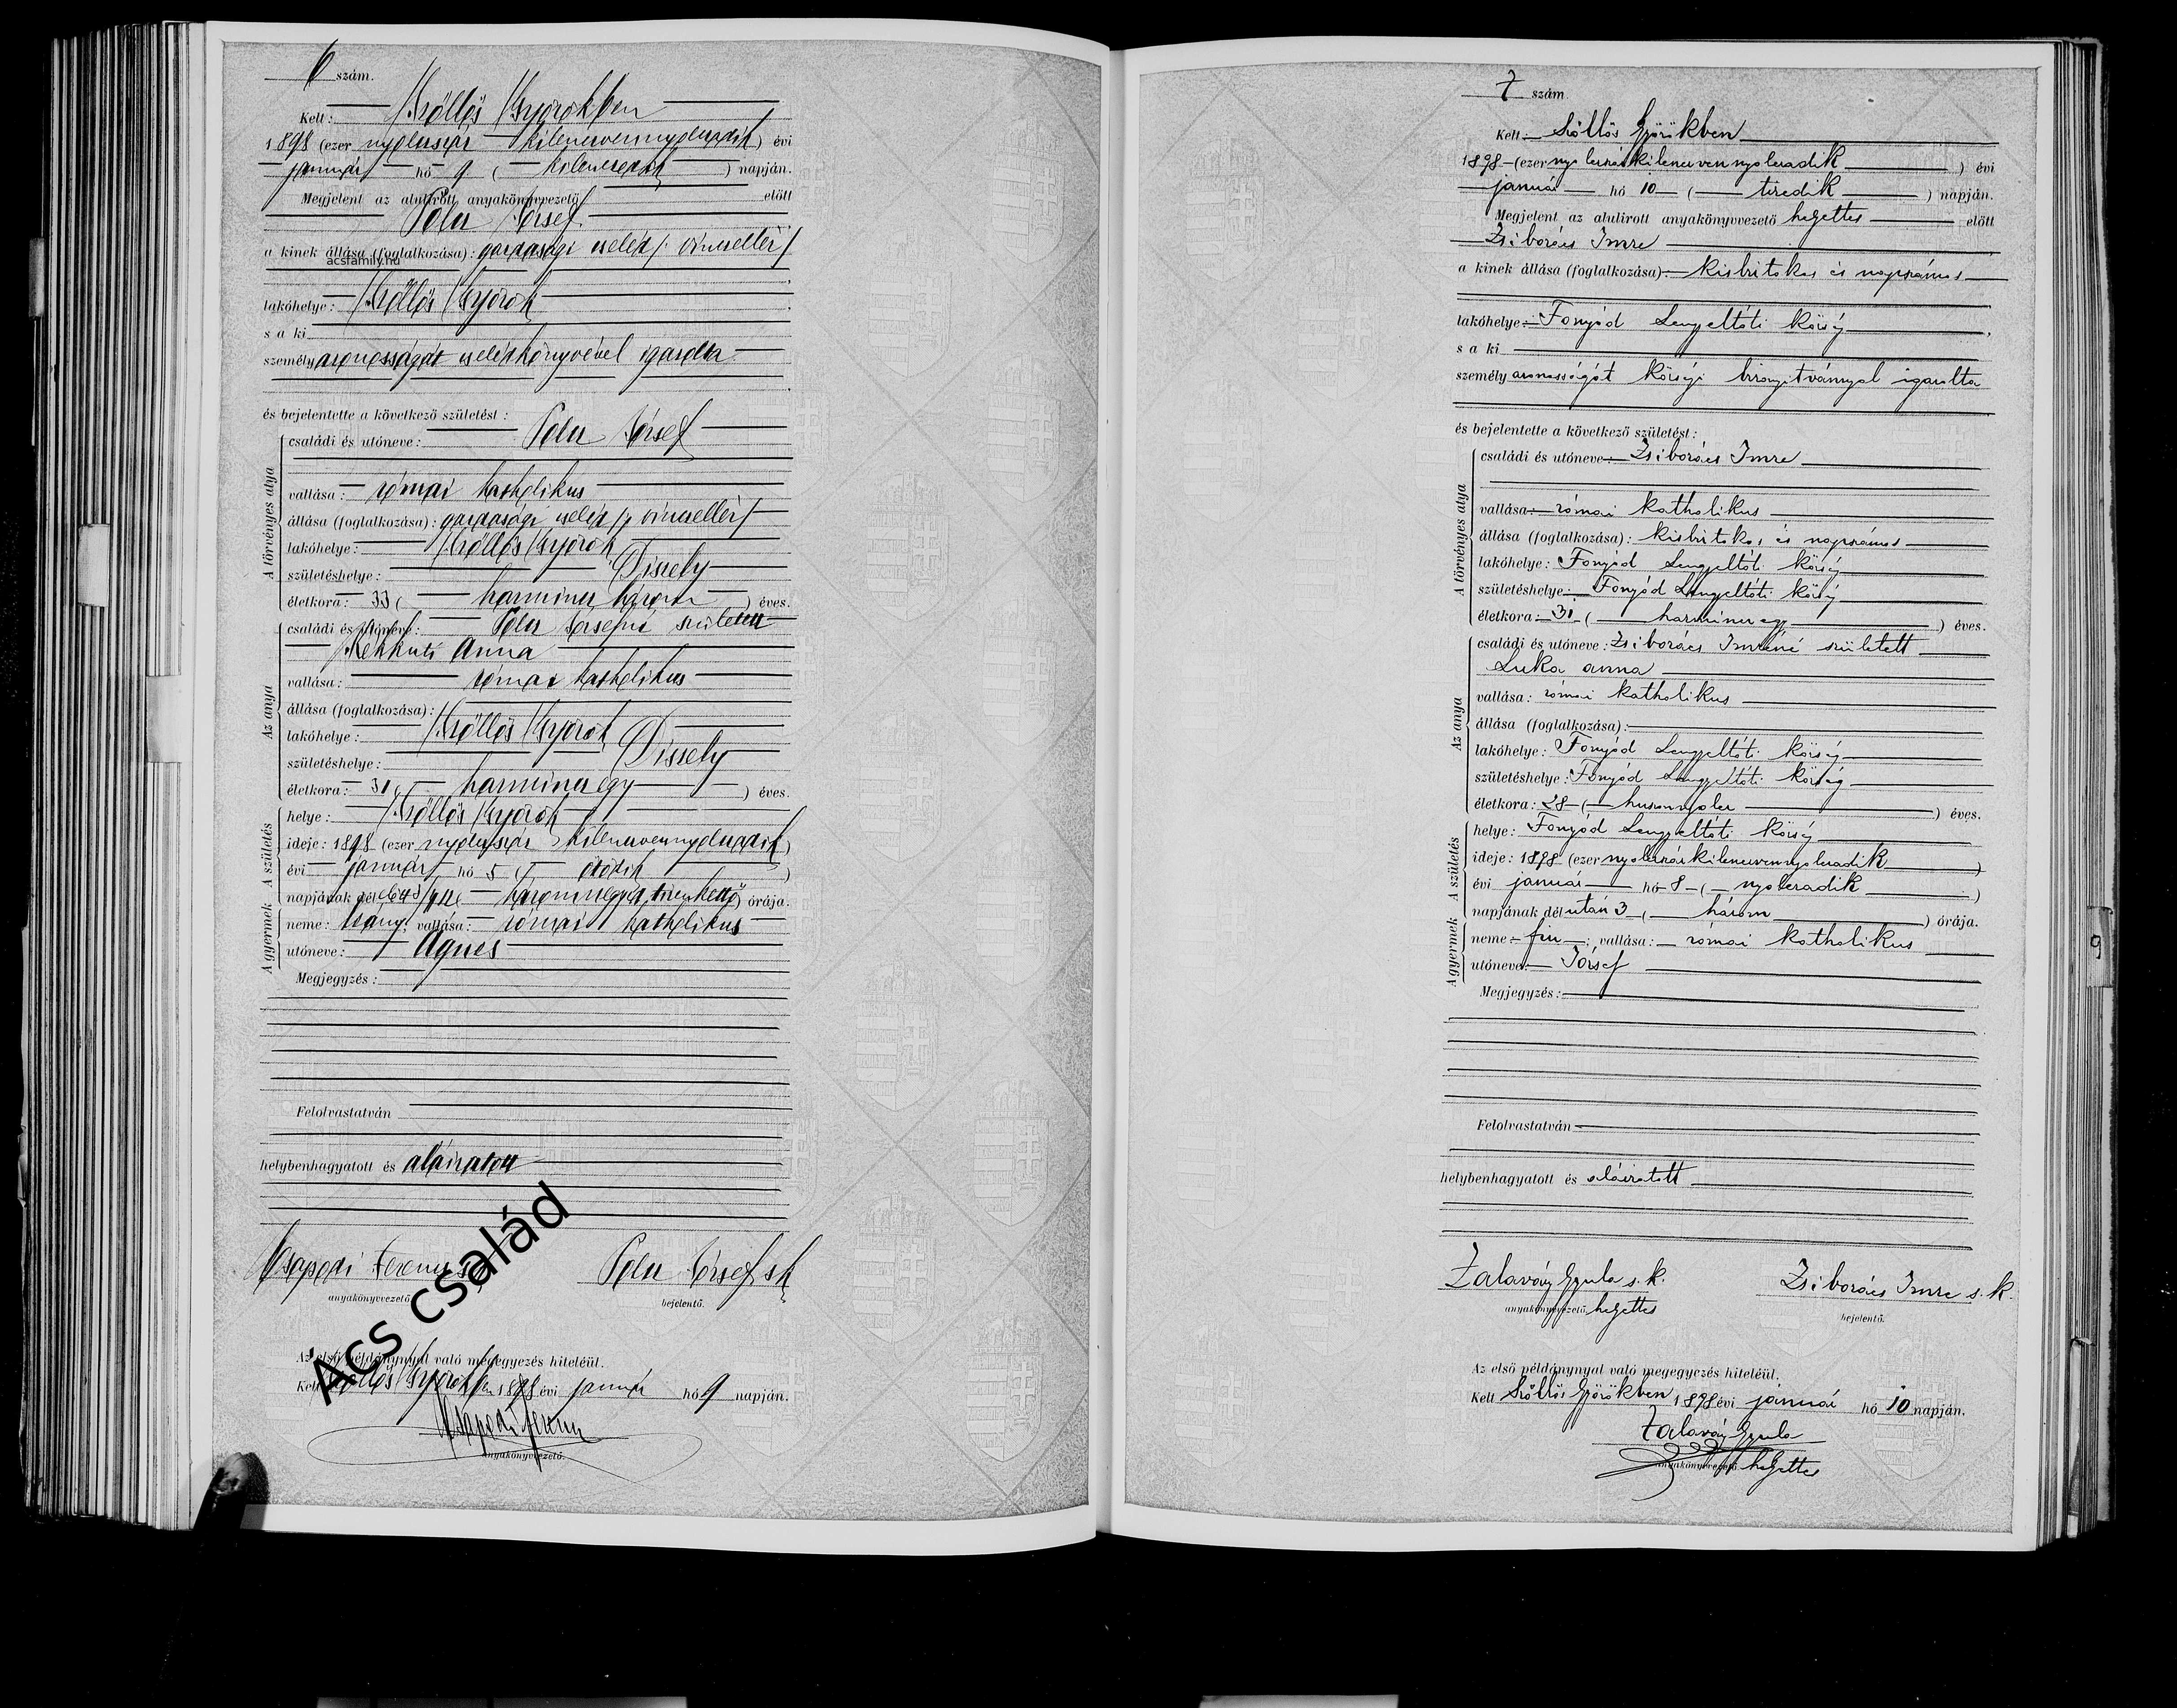 6 szám.
Kelt: Szőllős Györökben
1898 (ezer nyolcszáz kilencvennyolcadik) évi
január hó 9 (kilencedik) napján.
Megjelent az alulirott anyakönyvvezető előtt
József
a kinek állása (foglalkozása): gazdasági cseléd /: vinczellér /
acsfamily.hu
lakóhelye: Szőllős Györök
s a ki
személyazonosságát cselédkönyvével igazolta
és bejelentette a következő születést:
A törvényes atya
családi és utóneve: József
vallása: római katholikus
állása (foglalkozása): gazdasági cseléd /: vinczellér /
lakóhelye: Szőllős Györök
születéshelye: Diszely
életkora: 33 (harmincz három) éves.
Az anya
családi és utóneve: Józsefné született
Anna
vallása: római katholikus
állása (foglalkozása):
lakóhelye: Szőllős Györök
születéshelye: Diszely
életkora: 31 (harmincz egy) éves.
A születés
helye: Szőllős Györök
ideje: 1898 (ezer nyolcszáz kilencvennyolcadik)
évi január hó 5 (ötödik)
napjának délelőtt háromnegyed tizenkettő) órája.
A gyermek
neme: leány; vallása: római katholikus
utóneve: Ágnes
Megjegyzés:
Felolvastatván
helybenhagyatott és aláiratott
Csapodi Ferencz s k József s k
anyakönyvvezető bejelentő.
Ács család
Az első példánynyal való megegyezés hiteléül.
Kelt Szőllős Györökben 1898 évi január hó 9 napján.
Csapodi Ferencz
anyakönyvvezető.
7 szám
Kelt: Szőllős Györökben
1898 (ezer nyolczszázkilenczvennyolczadik) évi
január hó 10 (tizedik) napján.
Megjelent az alulirott anyakönyvvezető helyettes előtt
Zsiborács Imre
a kinek állása (foglalkozása): kisbirtokos és napszámos
lakóhelye: Fonyód Lengyeltóti község,
s a ki
személyazonosságát községi bizonyitványnyal igazolta
és bejelentette a következő születést:
A törvényes atya
családi és utóneve: Zsiborács Imre
vallása: római katholikus
állása (foglalkozása): kisbirtokos és napszámos
lakóhelye: Fonyód Lengyeltóti község
születéshelye: Fonyód Lengyeltóti község
életkora: 31 (harminczegy) éves.
Az anya
családi és utóneve: Zsiborács Imréné született
Luka anna
vallása: római katholikus
állása (foglalkozása):
lakóhelye: Fonyód Lengyeltóti község
születéshelye: Fonyód Lengyeltóti község
életkora: 28 (huszonnyolcz) éves.
A születés
helye: Fonyód Lengyeltóti község
ideje: 1898 (ezer nyolczszázkilenczvennyolczadik)
évi január hó 8 (nyolczadik)
napjának délután 3 (három) órája.
A gyermek
neme: fiu; vallása: római katholikus
utóneve: József
Megjegyzés:
Felolvastatván
helybenhagyatott és aláiratott
Zalaváry Gyula s. k. Zsiborács Imre s. k.
anyakönyvvezető helyettes bejelentő.
Az első példánynyal való megegyezés hiteléül.
Kelt Szőllős Györökben 1898 évi január hó 10 napján.
Zalaváry Gyula
anyakönyvvezető helyettes